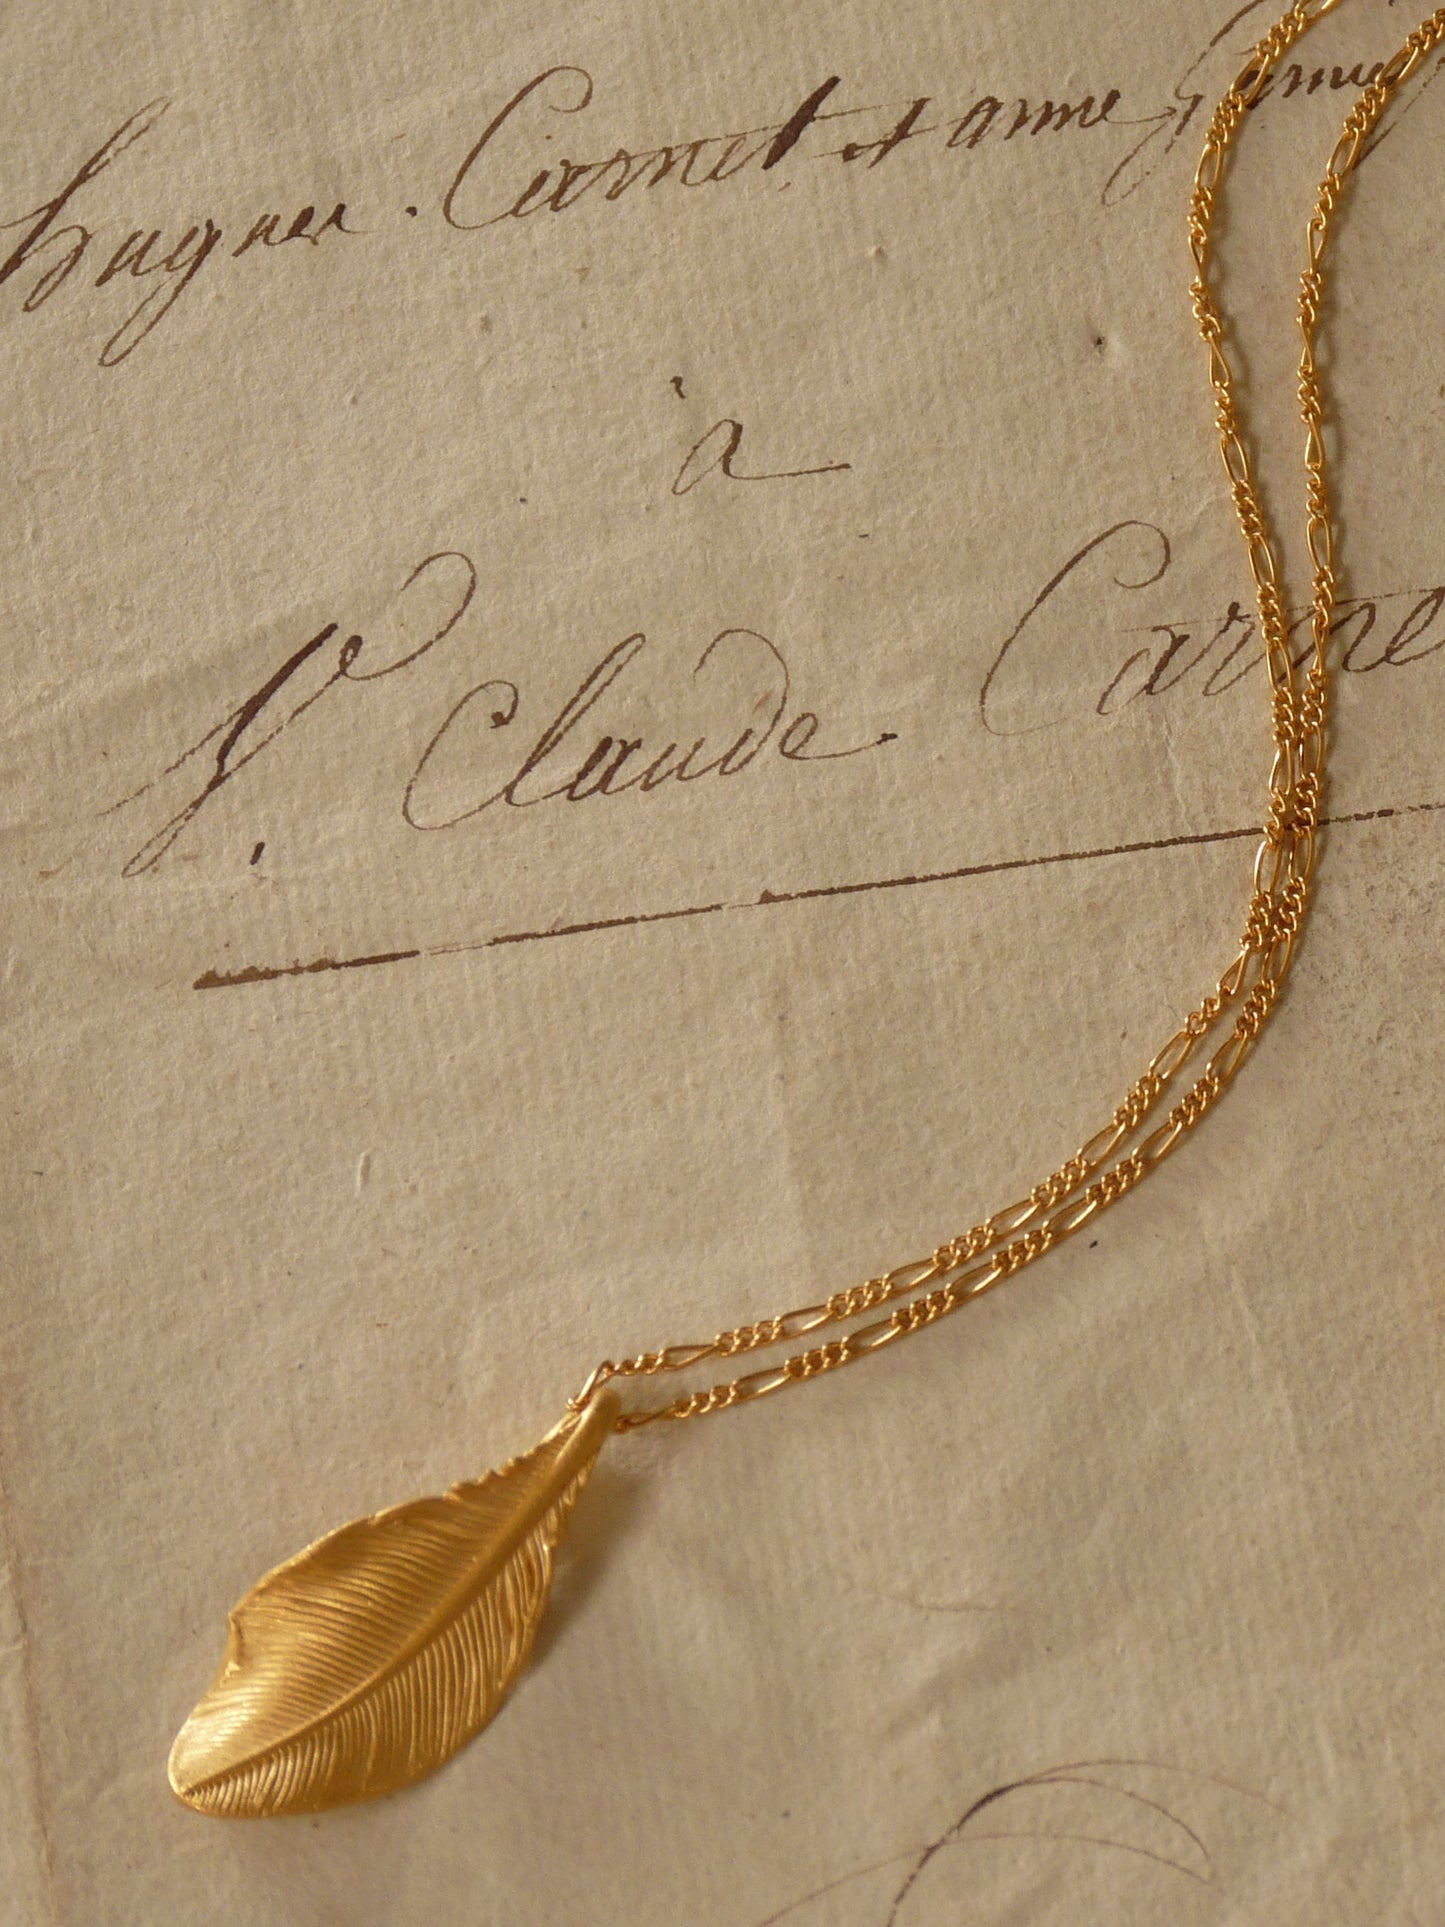 hugues. Carnet et anne
à
Claude. Carne